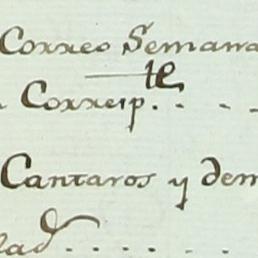 Correo Semana
Corresp.te . . . .
Cantaros y dem
lad . . . . .